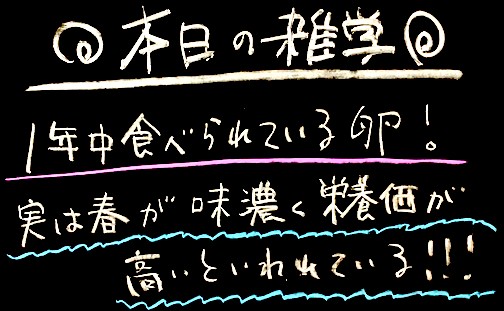 本日の雑学
1年中食べられている卵!
実は春が味濃く栄養価が
高いといわれている!!!